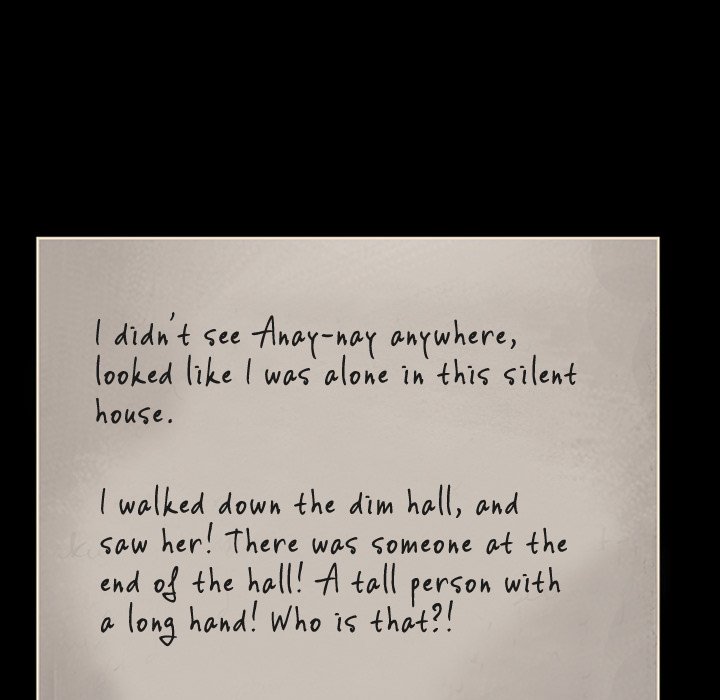 I didn't see Anay-nay anywhere,
looked like I was alone in this silent
house.
I walked down the dim hall, and
saw her! There was someone at the
end of the hall! A tall person with
a long hand! Who is that?!